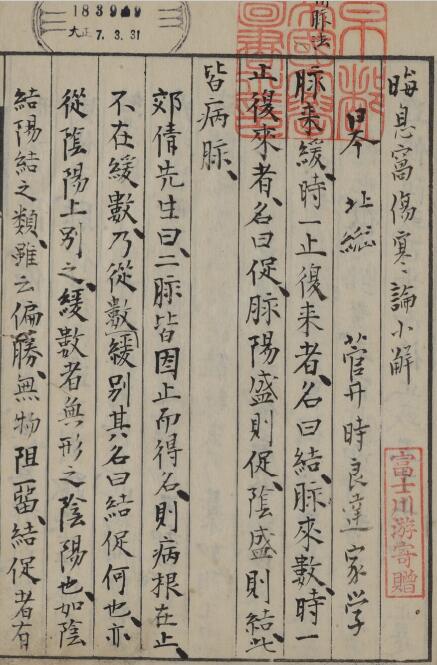 脉法
晦息窩傷寒論小解
日本 北総 菅井時良達家学
脉来緩、時一止復来者、名曰結、脉來數、時一
止復來者、名曰促、脉陽盛則促、陰盛則結、此
皆病脉、
郊倩先生曰、二脉皆因止而得名、則病根在止、
不在緩數、乃從數緩別其名曰結促何也、亦
從陰陽上別之、緩數者無形之陰陽也、如陰
結陽結之類、雖云偏勝、無物阻畱、結促者有
富士川游寄贈
大正 7. 3. 31